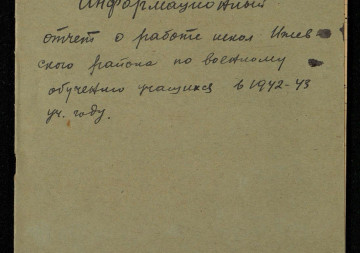 Информационный
отчет о работе школ Ижев-
ского района по военному
обучению учащихся в 1942-43
уч. году.